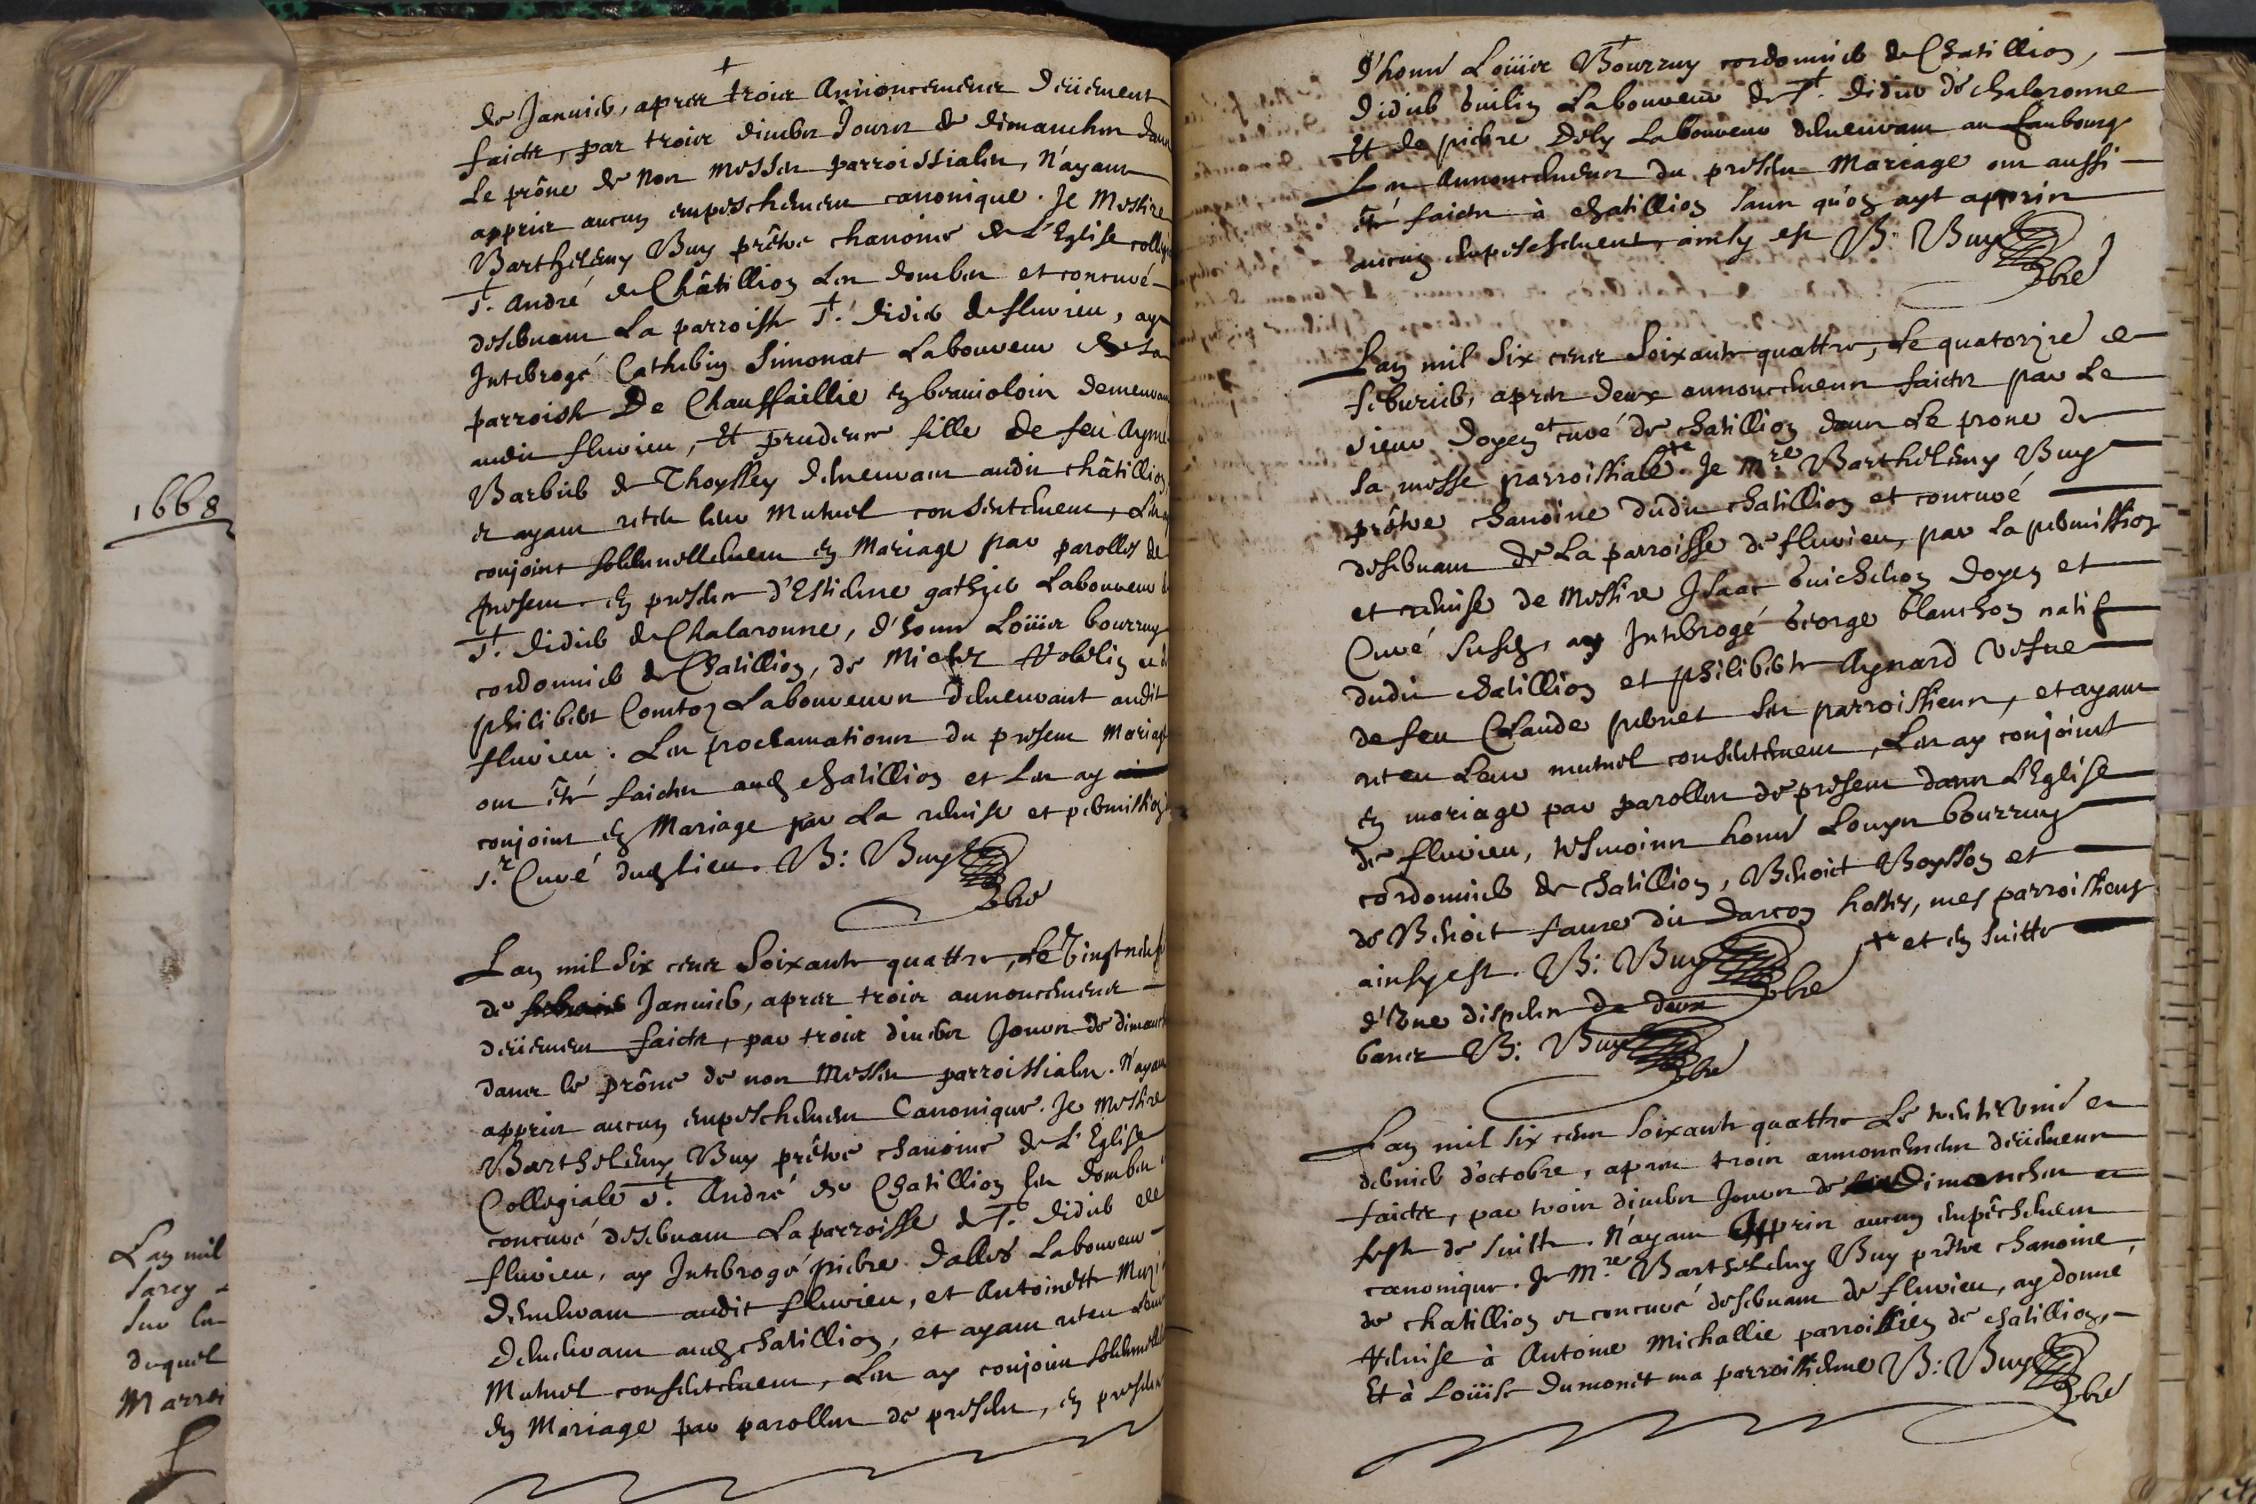 de Janvier, apres trois Annoncements deüement
faicts, par trois divers Jours de dimanches dans
Le prône de nos messes parroissiales, N'ayant
appris aucun empeschement canonique. Je Messire
Barthelemy Buy prêtre chanoine de L'Eglise colleg
St. André de Châtillion Les dombes et concuré
deservant La parroisse St. Didier de fluvieu, ay
Interogé Catherin Simonat Laboureur de la
parroisse De Chauffaillie en demeurant
audit fluvieu, Et prudence fille de feu Ayme
Barbier de Thoyssey demeurant audit châtillion,
et ayant receu leur Mutuel consentement, Les ay
conjoint solemnellement en Mariage par parolles de
present en presence d'Estienne gathier Laboureur de
St. didier de Chalaronne, d'honn Loüis bourruy
cordonnier de Chatillion, de
philibert Comton Laboureurs demeurant audit
fluvieu. Les proclamations du present Mariage
ont été faictes aud chatillion et Les ay
conjoint en Mariage par La remise et permission
Sr. Curé dud lieu. B: Buy
pbre
1668
Lan mil six cents Soixante quattre, Le Vingt neuf
de Janvier, apres trois annoncements
deüement faicts, par trois divers Jours de dimanche
dans le prône de nos Messes parroissiales. N'ayant
appris aucun empeschement Canonique. Je Messire
Barthelemy Buy prêtre chanoine de L'Eglise
Collegiale St. André de Chatillion Les dombes
concuré deservant La parroisse de St. Didier de
fluvieu, ay Interogé pierre dalles Laboureur
Demeurant audit fluvieu, et Antoinette
demeurant aud chatillion, et ayant receu Leur
Mutuel consentement, Les ay conjoint solemnelle
en Mariage par parolles de present, en presence
Lan mil
Sarcy
Sur la
duquel
Marrei
d'honn Loüis Bourruy cordonnier de Chatillion,
didier Laboureur de St. didier de chalaronne
Et de pierre Laboureur demeurant au faubourg
Les Annoncements du present Mariage ont aussi
été faictes à chatillion sans qu'on ayt appris
aucun empeschement, ainsy est B: Buy
pbre
Lan mil six cents Soixante quattre, Le quatorzie de
feburier, apres deux annoncements faicts par Le
sieur doyen et curé de chatillion dans Le prone de
sa messe parroissiale. Je Mre Barthelemy Buy
prêtre chanoine dudit chatillion et concuré
deservant de La parroisse de fluvieu, par la permission
et remise de Messire Isaac Guichenon doyen et
Curé Susd, ay Interogé George blanchon natif
dudit chatillion et philiberte Aynard vefue
de feu Claude pernet Ses parroissiens, et ayant
receu Leur mutuel consentement, Les ay conjoinct
en mariage par parolles de present dans L'Eglise
de fluvieu, tesmoins honn Louys bourruy
cordonnier de chatillion, Benoict Boysson et
de Benoit faure dit darcon hostes, mes parroissiens
ainsy est. B: Buy pbre + et en suitte
d'Vne dispense de deux
bancs B: Buy
pbre
Lan mil six cents Soixante quattre Le trentevnie et
dernier d'octobre, apres trois annoncements deüement
faicts, par trois divers Jours de Dimanches et
feste de suitte. N'ayant Appris aucun empêchement
canonique. Je Mre Barthelemy Buy prêtre chanoine,
de chatillion et concuré deservant de fluvieu, ay donné
Remise à Antoine Michallie parroissien de chatillion,
Et à Loüise dumonet ma parroissienne B: Buy
pbre